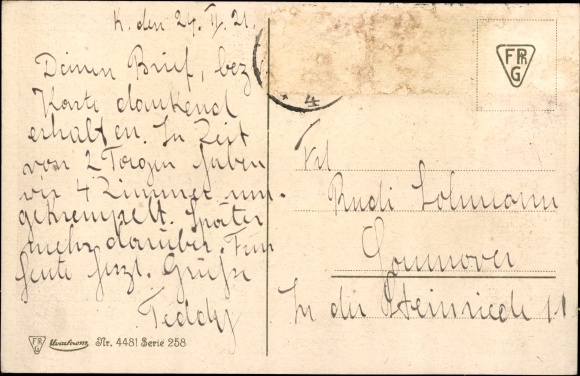 K. den 24. V. 21.
Deinen Brief, bez
Karte dankend
erhalten. In Zeit
von 2 Tagen haben
wir 4 Zimmer um-
gekrempelt. Später
mehr darüber. Für
heute herzl. Grüße
Teddy
4
FPRG
Rudi Lohmann
Hannover
In der Steinriede 11
FPRG Uvachrom Nr. 4481 Serie 258